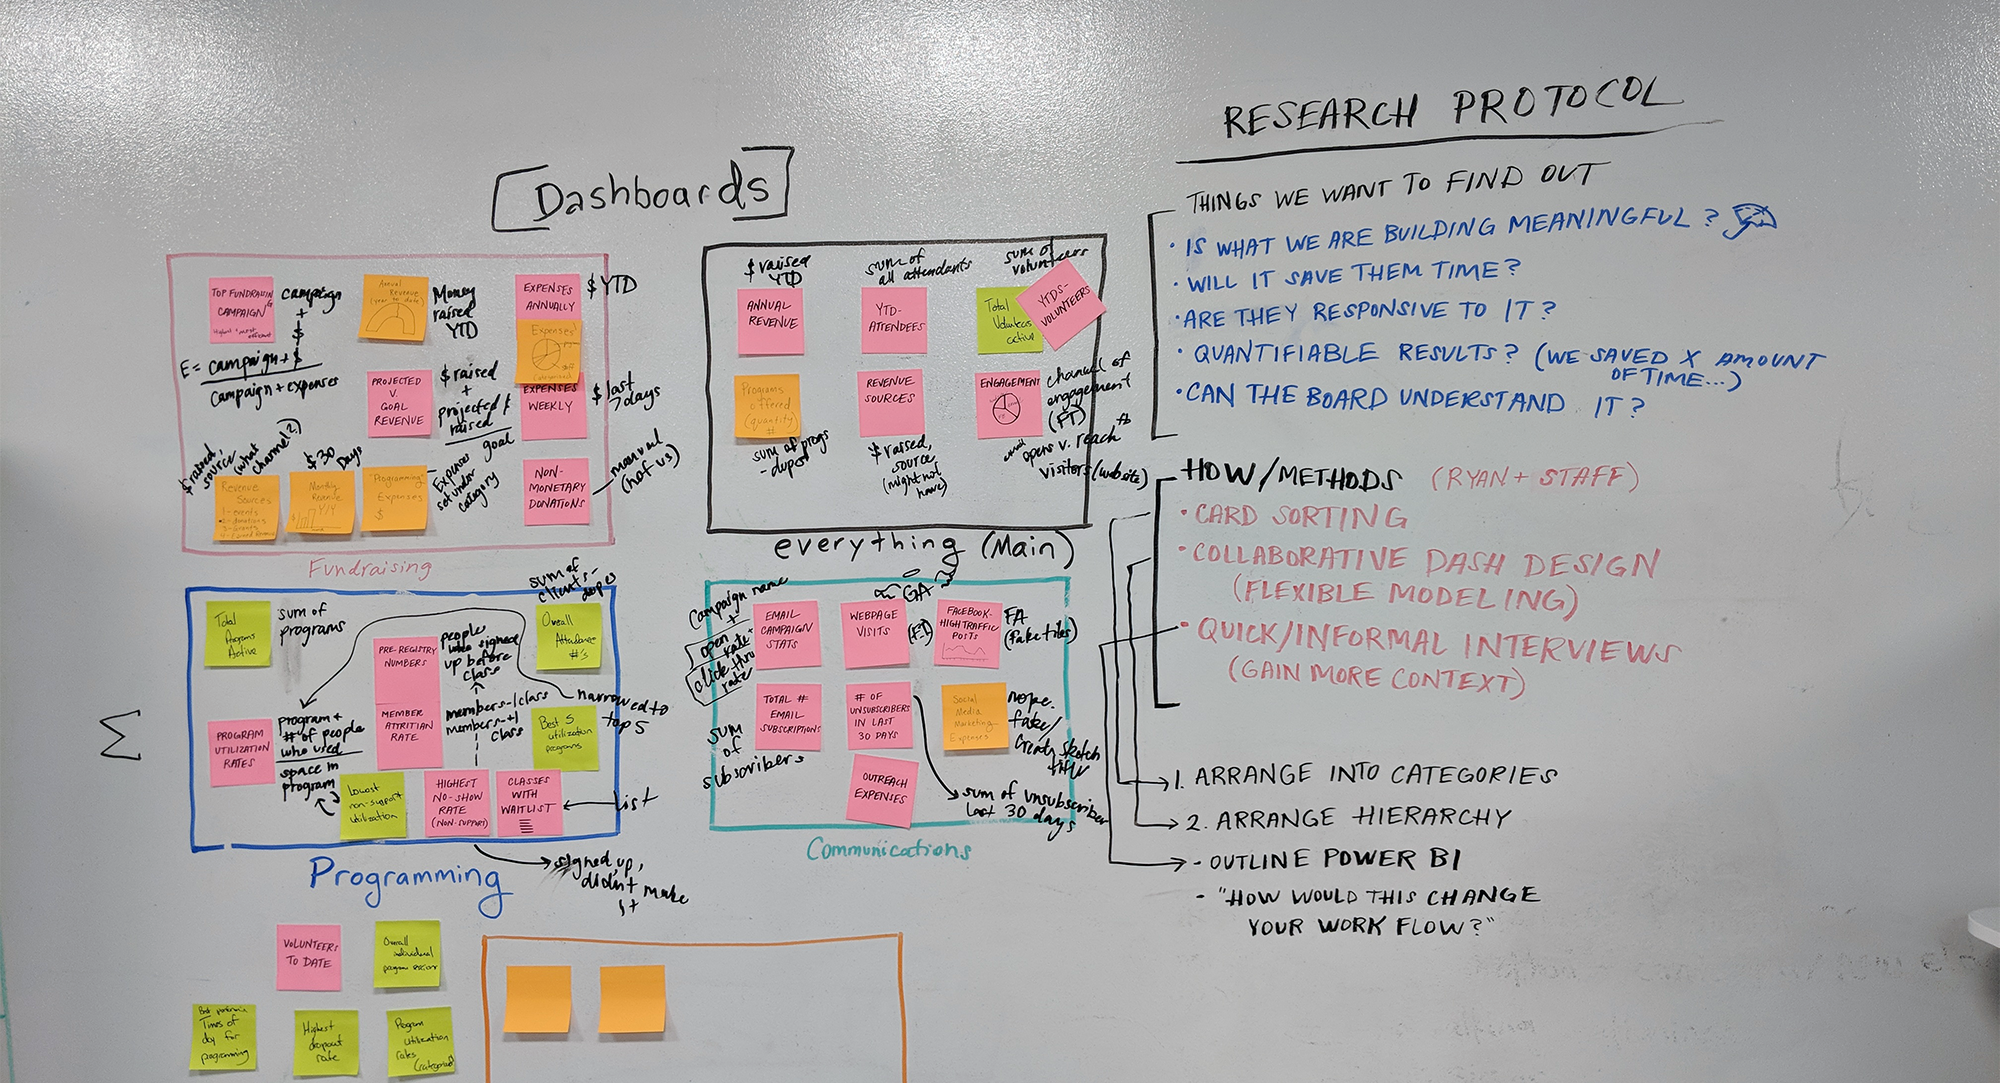 Dashboards
TOP FUNDRAISING
CAMPAIGN
campaign
+
$
E = campaign + $
campaign + expenses
Annual
Revenue
(year to date)
Money
raised
YTD
EXPENSES
ANNUALLY
$ YTD
Expenses
PROJECTED
V.
GOAL
REVENUE
$ raised
+
projected $
raised
goal
EXPENSES
WEEKLY
$ last
7 days
$ raised,
source
(what
channel?)
Revenue
Sources
1 - events
2 - donations
3 - Grants
4 - Earned Revenue
$30
Days
Monthly
Revenue
Y/Y
$
Programming
Expenses
$
Expenses
set under
category
NON-
MONETARY
DONATIONS
manual
(not us)
Fundraising
$ raised
YTD
ANNUAL
REVENUE
sum of
all attendants
YTD-
ATTENDEES
sum of
volunteers
Total
Volunteers
active
YTDS-
VOLUNTEERS
Programs
offered
(quantity)
#
sum of progs
- dupes
REVENUE
SOURCES
$ raised,
source
(might not
have)
ENGAGEMENT
channel of
engagement
(FT)
opens v. reach fb
visitors (website)
everything (Main)
Total
Programs
Active
sum of
programs
PRE-REGISTRY
NUMBERS
people
who signed
up before
class
sum of
clients -
dupes
Overall
Attendance
#'s
PROGRAM
UTILIZATION
RATES
program +
# of people
who used
space in
program
MEMBER
ATTRITIAN
RATE
members - 1 class
members - +1
class
narrowed to
top 5
Best 5
utilization
programs
Lowest
non-support
utilization
HIGHEST
NO-SHOW
RATE
(NON-SUPPORT)
CLASSES
WITH
WAITLIST
list
Programming
signed up,
didn't make
it
Σ
Campaign name
+
open
rate +
click thru
rate
EMAIL
CAMPAIGN
STATS
GA
WEBPAGE
VISITS
(FT)
FACEBOOK-
HIGH TRAFFIC
POSTS
FA
(fake tiles)
TOTAL #
EMAIL
SUBSCRIPTIONS
SUM
OF
subscribers
# OF
UNSUBSCRIBERS
IN LAST
30 DAYS
Social
Media
Marketing
Expenses
nope.
fake/
OUTREACH
EXPENSES
sum of unsubscriber
last 30 days
Communications
VOLUNTEERS
TO DATE
Overall
individual
Times of
day for
programming
Highest
dropout
rate
Program
utilization
rates
RESEARCH PROTOCOL
THINGS WE WANT TO FIND OUT
• IS WHAT WE ARE BUILDING MEANINGFUL?
• WILL IT SAVE THEM TIME?
• ARE THEY RESPONSIVE TO IT?
• QUANTIFIABLE RESULTS? (WE SAVED X AMOUNT
OF TIME...)
• CAN THE BOARD UNDERSTAND IT?
HOW/METHODS (RYAN + STAFF)
• CARD SORTING
• COLLABORATIVE DASH DESIGN
(FLEXIBLE MODELING)
• QUICK/INFORMAL INTERVIEWS
(GAIN MORE CONTEXT)
1. ARRANGE INTO CATEGORIES
2. ARRANGE HIERARCHY
- OUTLINE POWER BI
- "HOW WOULD THIS CHANGE
YOUR WORK FLOW?"